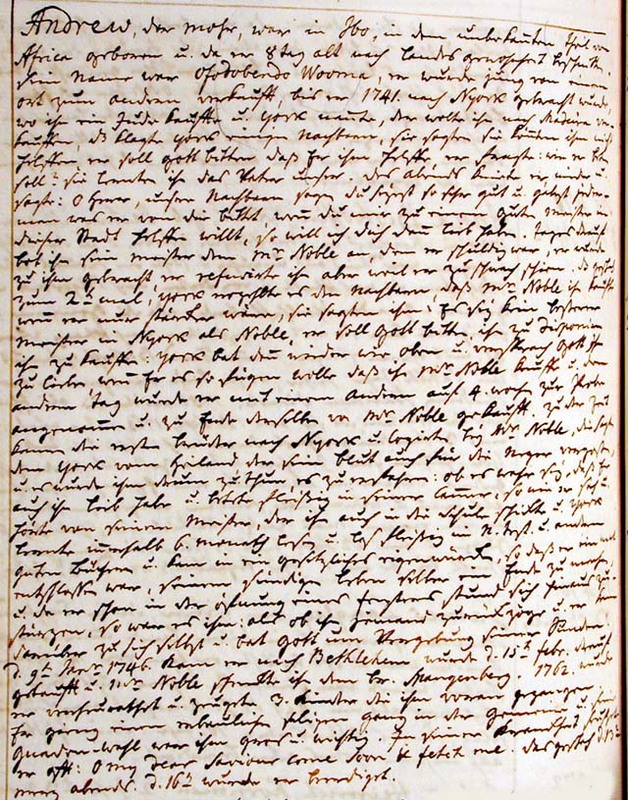 Andrew, der mohr, war in Ibo, in dem unbekanten Theil von
Africa geboren u. da er 8 tag alt nach landes gewohnheit beschnitten.
Sein Name war Ofodobendo Wooma, er wurde jung von einem
ort zum andern verkaufft, bis er 1741. nach NYork gebracht wurde
wo ihn ein Jude kauffte u. York nennte, der wolte ihn nach Madeira ver-
kauffen, klagte York einigen Nachbarn, sie sagten sie könten ihm nicht
helffen er soll Gott bitten daß Er ihm helffe, er fragte: wie er beten
soll? sie lernten ihn das Vater unser. des abends kniete er nieder u.
sagte: O Herr, unsere Nachbarn sagen du seyst so sehr gut u. gebest jeder-
man was er von dir bittt wenn du mir zu einem guten meister in
dieser Stadt helffen willt, so will ich dich dann lieb haben. Tages drauf
bot ihn sein meister dem Mr Noble an, dem er schuldig war, er wurde
zu ihm gebracht, er refusirte ihn aber weil er zu schwach schien.
zum 2t mal, york erzehlte es den Nachbarn, daß Mr Noble ihn kauffte
wenn er nur stärcker wäre, sie sagten ihm: Es sey kein besserer
meister in NYork als Noble, er soll Gott bitten, ihn zu disponiren
ihn zu kauffen: york bat denn wieder wie oben u. versprach Gott ihn
zu lieben wenn Er es so fügen wolte daß ihn Mr Noble kauffte u. den
andern Tag wurde er mit einem andern auf 4. woch zur Probe
angenommen u. zu Ende derselben von Mr Noble gekaufft. zu der Zeit
kamen die ersten brüder nach NYork u. logirten bey Mr Noble, die sagten
dem York vom Heiland, der sein blut auch für die Neger vergossen,
u. es wurde ihm drum zu thun, es zu erfahren: ob es wahr sey, daß Er
auch ihn lieb habe u. betete fleissig in seiner Cammer, so wie er sah u.
hörte von seinem Meister, der ihn auch in die schule schickte u. York
lernte innerhalb 6. monath lesen u. las fleissig im N. Test. u. andern
guten büchern u. kam in ein gesetzliches eigenwürcken, so daß er einmal
entschlossen war, seinem sündigen leben selber ein Ende zu machen,
u. da er schon in der öfnung eines fensters stund sich hinaus zu-
stürzen, so war es ihm: als ob ihn jemand zurück zöge u. er kam
darüber zu sich selbst u. bat Gott um Vergebung seiner Sünden.
d. 9t Jan. 1746. kam er nach Bethlehem wurde d. 15t febr. drauf
getaufft u. Mr Noble schenkte ihn dem br. Spangenberg. 1762. wurde
er verheurathet u. zeugte 3. kinder die ihm voran gegangen
Er ging einen erbaulichen seligen gang in der gemeine u. seine
gnaden-wahl war ihm gros u. wichtig. In seiner kranckheit seufzte
er oft: O my dear Saviour come soon & fetch me. das geschah d. 13t
merz abends. d. 16t wurde er beerdiget.